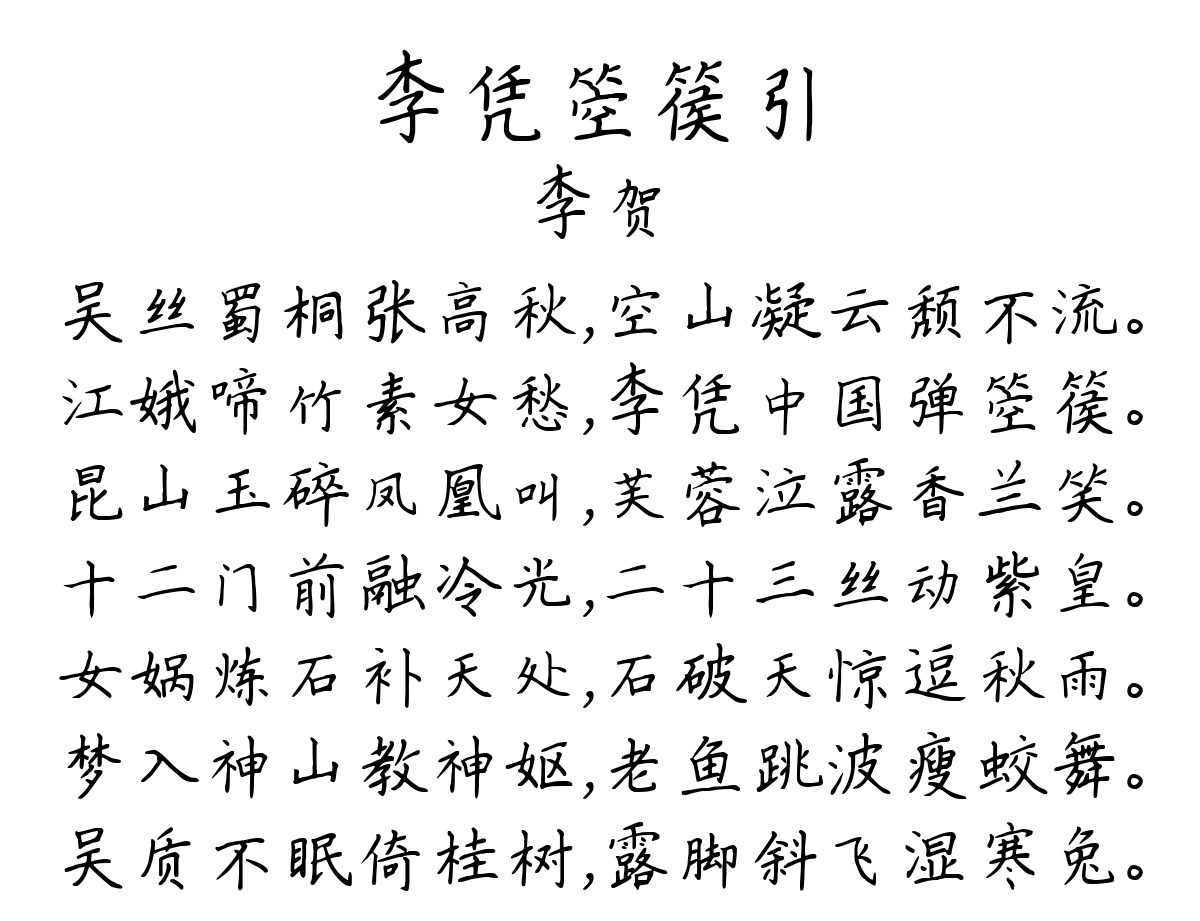 李凭箜篌引
李贺
吴丝蜀桐张高秋,空山凝云颓不流。
江娥啼竹素女愁,李凭中国弹箜篌。
昆山玉碎凤凰叫,芙蓉泣露香兰笑。
十二门前融冷光,二十三丝动紫皇。
女娲炼石补天处,石破天惊逗秋雨。
梦入神山教神妪,老鱼跳波瘦蛟舞。
吴质不眠倚桂树,露脚斜飞湿寒兔。